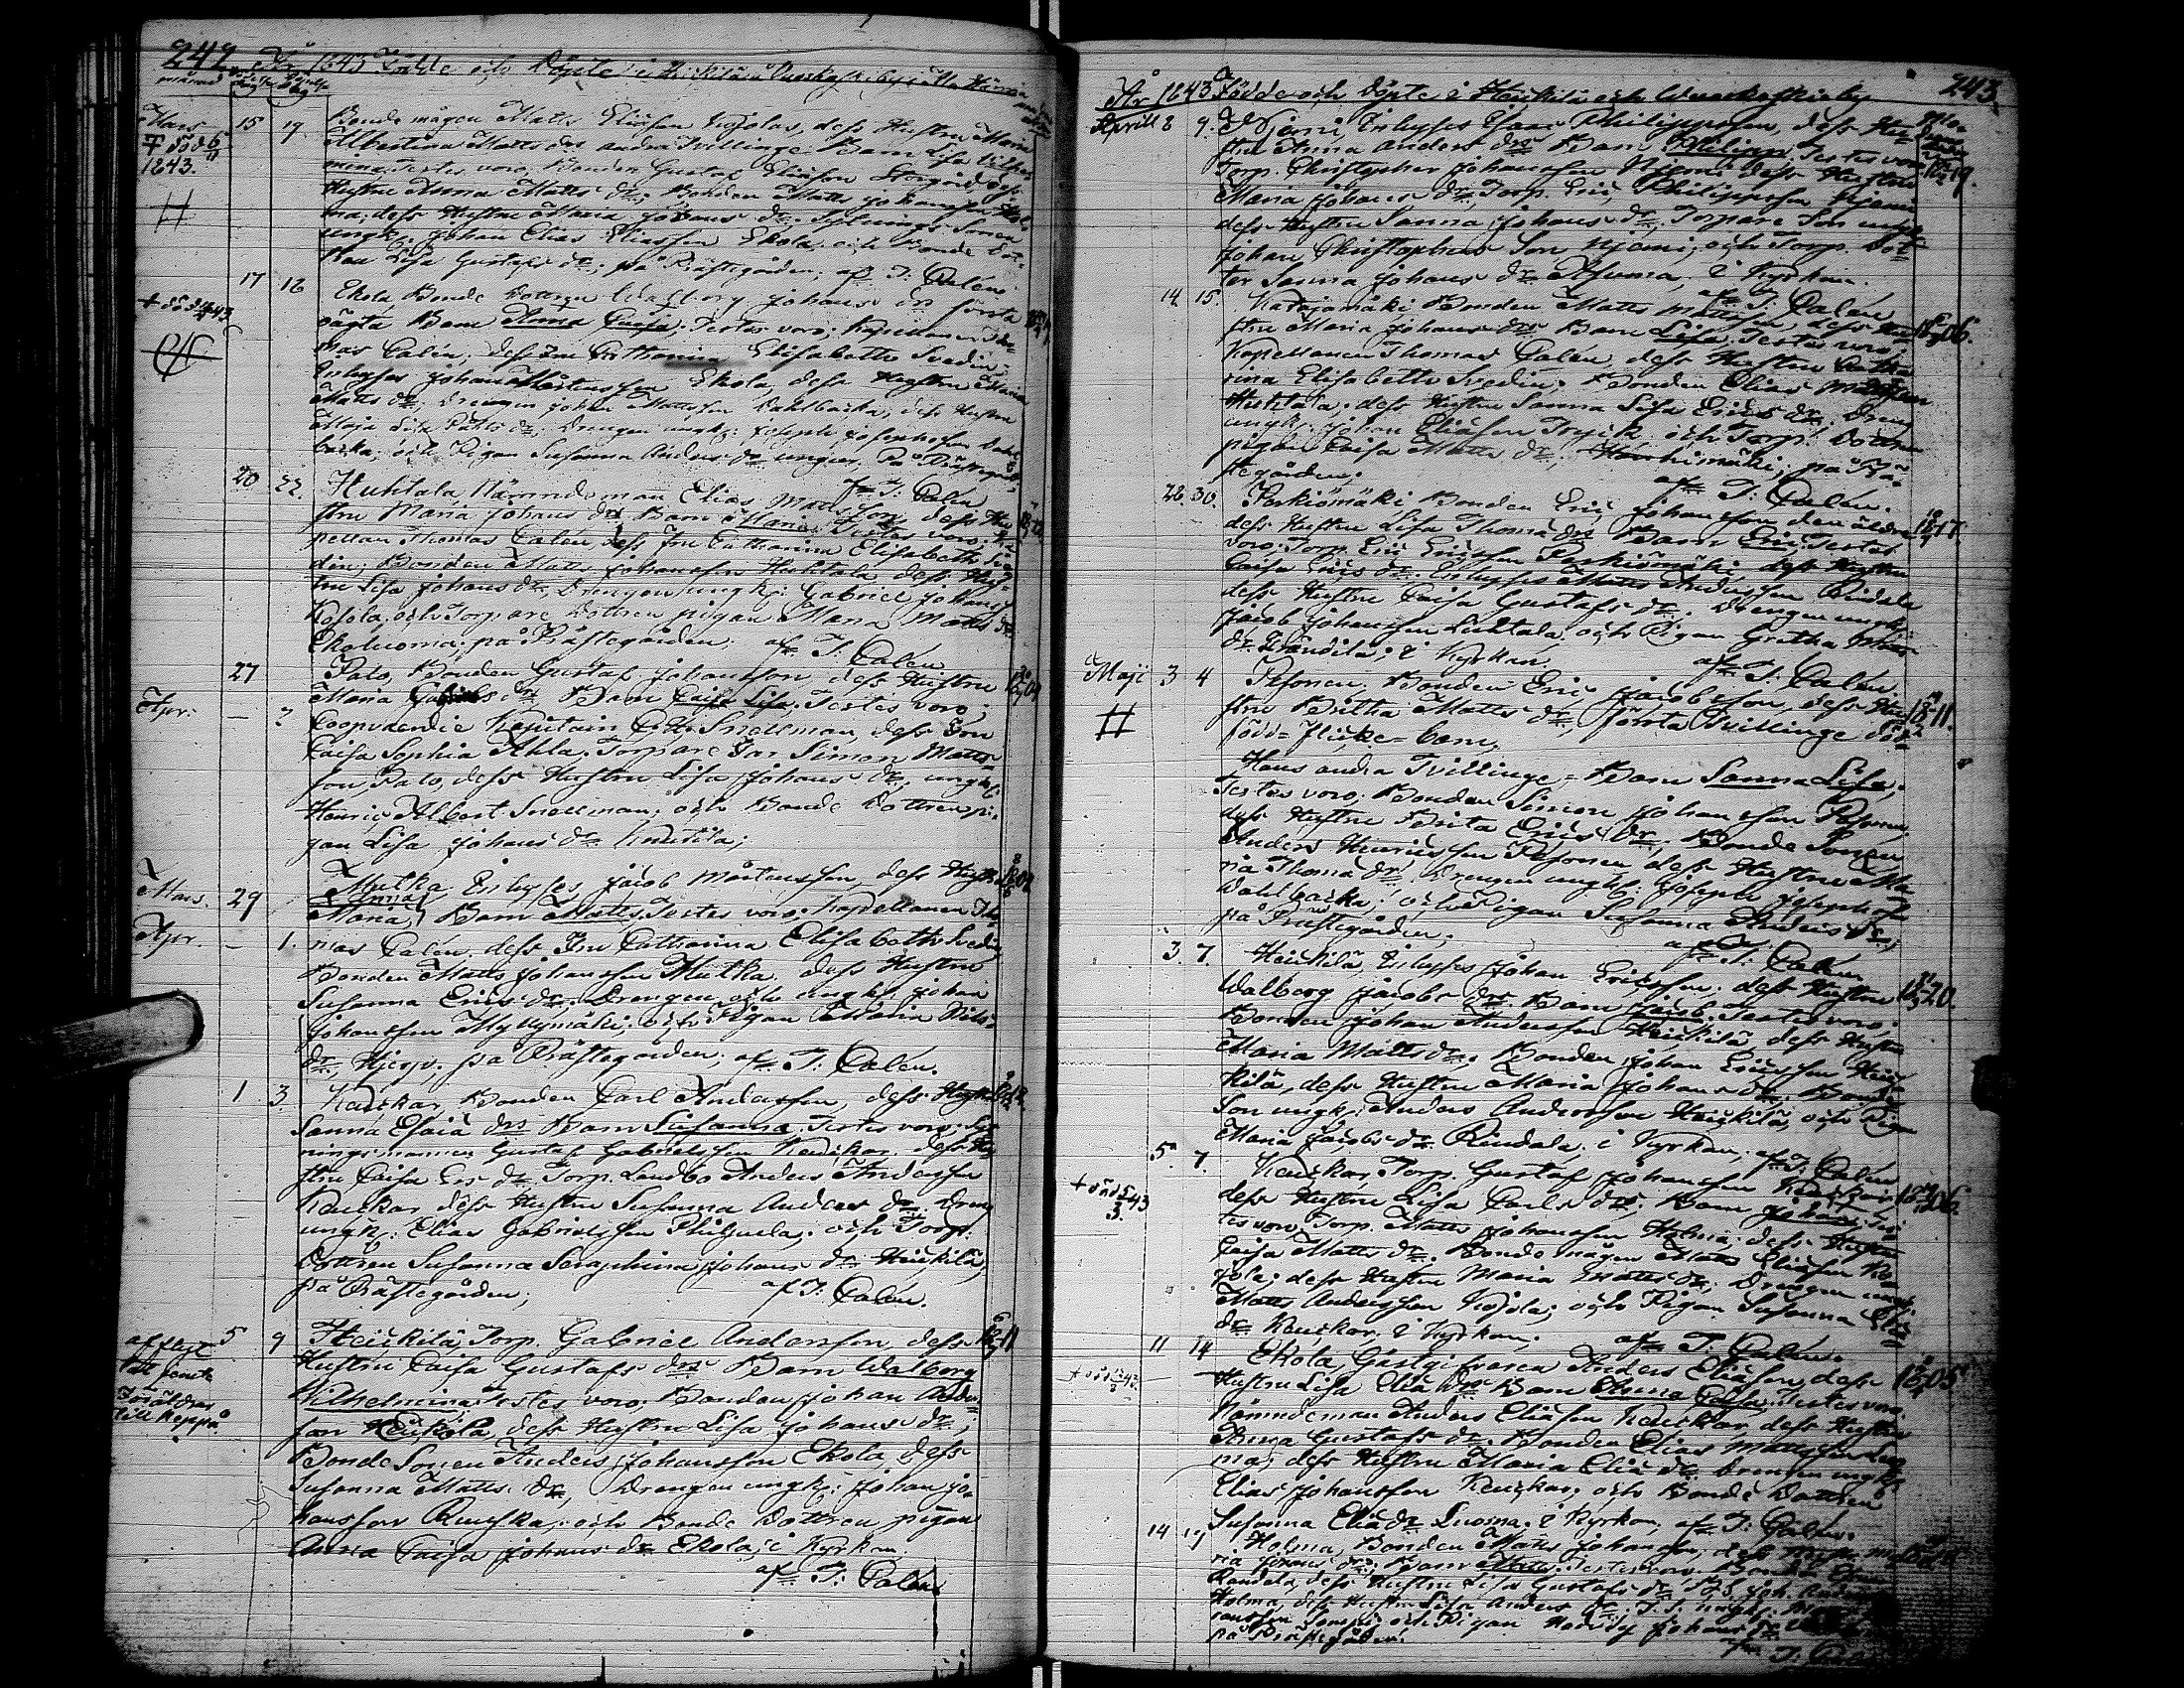 242. År 1843 Födde och Döpte i
månad
Mars 15 19 Bonde mågen Matts Eliasson Kojolas, dess Hustru Maria
† död 6/11 Albertina Matts drs andra Tvillinge Barn Lisa Vilhel-
1843. mina, Testes voro, Bonden Gustaf Eliasson Storgård dess
Hustru Anna Matts dr; Bonden Matts Johansson Hol-
ma, dess Hustru Maria Johans dr; Sytnings Sonen
ungk. Johan Elias Eliasson Ekola, och Bonde Dot-
tren Lisa Gustafs dr; på Prästegården; af T: Calén
17 18 Ekola Bonde Dottren Walborg Johans dr första
oägta Barn Anna Caisa; Testes voro: Kapellanen Tho-
mas Calén, dess Fru Catharina Elisabeth Svedin
Inhyses Johan Mårtensson Ekola, dess Hustru Maria
Matts dr; Drengen Johan Mattsson Dahlbacka, dess Hustru
Maja Lisa Matts dr; Drengen ungk: Joseph Josephsson Dahl-
backa, och Pigan Susanna Anders dr ungver, På Prästegård;
af T: Calén
20 22. Huhtala, Nämndeman Elias Mattsson dess Hu-
stru Maria Johans drs Barn Maria Testes voro: Ka-
pellan Thomas Calén, dess Fru Catharina Elisabeth Sve-
din; Bonden Matts Johansson Huhtala, dess Hus-
tru Lisa Johans dr; Drengen ungk: Gabriel Johans
Kojola, och Torpare Dottren pigan Maria Matts dr
Ekoluoma; på Prästegården; af T: Calén
27 Palo, Bonden Gustaf Johansson, dess Hustru
Maria Gabriels drs Barn Caisa Lisa. Testes voro;
Apr: — 2 Coopvaerdie Kapitain C: E: Snellman, dess Fru
Caisa Sophia Ahla, Torpare Son Simon Matts-
son Palo, dess Hustru Lisa Johans dr; ungk:
Henric Albert Snellman; och Bonde Dottren pi-
gan Lisa Johans dr Knuttila;
Mars. 29 Mutka, Inhyses, Jacob Mårtensson, dess Hustru
Anna
Maria, Barn Matts. Testes voro: Kapellanen Tho-
Apr. — 1. mas Calén, dess Fru Catharina Elisabeth Svedin,
Bonden Matts Johansson Mutka, dess Hustru
Susanna Erics dr; Drengen och ungk. Johan
Johansson Myllymäki; och Pigan Maria Nils
dr. Hjerp; på Prästegården; af T: Calén.
1 3. Kauckar, Bonden Carl Andersson, dess Hustru
Sanna Esaiä drs Barn Susanna. Testes voro: Syt-
ningsmannen Gustaf Gabrielsson Kauckar, dess Hu-
stru Caisa Ers dr. Torp. Landbo Anders Andersson
Kauckar dess Hustru Susanna Anders dr; Dreng
ungk: Elias Gabrielsson Philpula; och Torp:
Dottren Susanna Seraphina Johans dr Heickilä,
på Prästegården; af T: Calén.
5 9 Heickilä, Torp. Gabriel Andersson, dess
Hustru Caisa Gustafs drs Barn Walborg
Vilhelmina, Testes voro: Bonden Johan Anders-
son Heickilä, dess Hustru Lisa Johans dr;
Bonde Sonen Anders Johansson Ekola, dess
Susanna Matts dr, Drengen ungk: Johan Jo-
hansson Ruuska; och Bonde Dottren pigan
Anna Caisa Johans dr Ekola; i Kyrkan
af T: Calén
243.
År 1843 Födde och Döpte i Heickilä och
Aprill 8 9. Njemi, Inhyses Isaac Philippsson, dess Hu-
stru Anna Anders drs Barn Philipp, Testes voro:
Torp. Christopher Johansson Njemi dess Hustru
Maria Johans dr. Torp. Eric Philippsson Njemi
dess Hustru Sanna Johans dr. Torpare Son ungk
Johan Christophers Son Njemi, och Torp. Dot-
ter Sanna Johans dr. , i Kyrkan.
af T: Calén
14. 15. Katajamäki Bonden Matts Mattsson, dess Hu-
stru Maria Johans drs Barn Lisa, Testes voro:
Kapellanen Thomas Calén dess Hustru Catha-
rina Elisabeth Svedin; Bonden Elias Mattsson
Huhtala; dess Hustru Sanna Lisa Erics dr; Dreng
ungk: Johan Eliasson och Torp: Dottren
pigan Caisa Matts dr; på Prä-
stegården;
af T: Calén.
28. 30. Parkiömäki Bonden Eric Johansson den äldre
dess Hustru Lisa Thomä drs Barn Eric, Testes
voro: Torp. Eric Ericsson Parkiömäki, dess Hustru
Caisa Erics dr. Inhyses Matts Andersson Rindala
dess Hustru Caisa Gustafs dr. Drengen ungk:
Jacob Johansson Luhtala, och Pigan Gretha Matts
dr. ; i Kyrkan. af T: Calén.
Maji 3 4 Pesonen, Bonden Eric Jacobsson, dess Hu-
stru Britha Matts dr, första Tvillinge död-
född flicke-barn,
Hans andra Tvillinge-Barn Sanna Lisa;
Testes voro, Bonden Simon Johansson Pesonen,
dess Hustru Brita Erics dr; Bonde Sonen
Anders Henricsson Pesonen dess Hustru Ma-
ria Thomä dr; Drengen ungk: Joseph Josephsson
Dahlbacka; och Pigan Susanna Anders dr;
på Prästegården;
af T: Calén
3. 7. Heickilä, Inhyses Johan Ericsson, dess Hustru
Walborg Jacobs drs Barn Jacob. Testes voro:
Bonden Johan Andersson Heickilä, dess Hustru
Maria Matts dr; Bonden Johan Ericsson Heic-
kilä, dess Hustru Maria Johans dr. Bonde
Son ungk: Anders Andersson Heickilä, och Pigan
Maria Jacobs dr. Rindala; i Kyrkan; af T: Calén
5. 7. Kauckar, Torp. Gustaf Johansson Kauckar,
dess Hustru Lisa Carls drs; Barn Johan. Tes-
tes voro: Torp. Matts Johansson Holma; dess Hustru
Caisa Matts dr; Bonde mågen Matts Eliasson Ko-
jola; dess Hustru Maria Matts dr; Drengen ungk:
Matts Andersson Kojola; och Pigan Susanna
dr Kauckar, i Kyrkan; af T: Calén.
11 14 Ekola, Gästgifvaren Anders Eliasson, dess
Hustru Lisa Eliä drs Barn Anna Caisa. Testes voro:
Nämndeman Anders Eliasson Kauckar, dess Hustru
Anna Gustafs dr. Bonden Elias Mattsson Luo-
ma; dess Hustru Maria Eliä dr. Drengen ungk:
Elias Johansson Kauckar, och Bonde Dottren
Susanna Eliä dr Luoma; i Kyrkan, af T: Calén.
14 19 Holma, Bonden Matts Johansson, dess Hustru Ma-
ria Johans drs Barn Testes voro: Bonden
dess Hustru Lisa Gustafs dr
Holma, dess Hustru Lisa Anders dr;
och Pigan Johans dr
på Prästegården.
af T: Calén